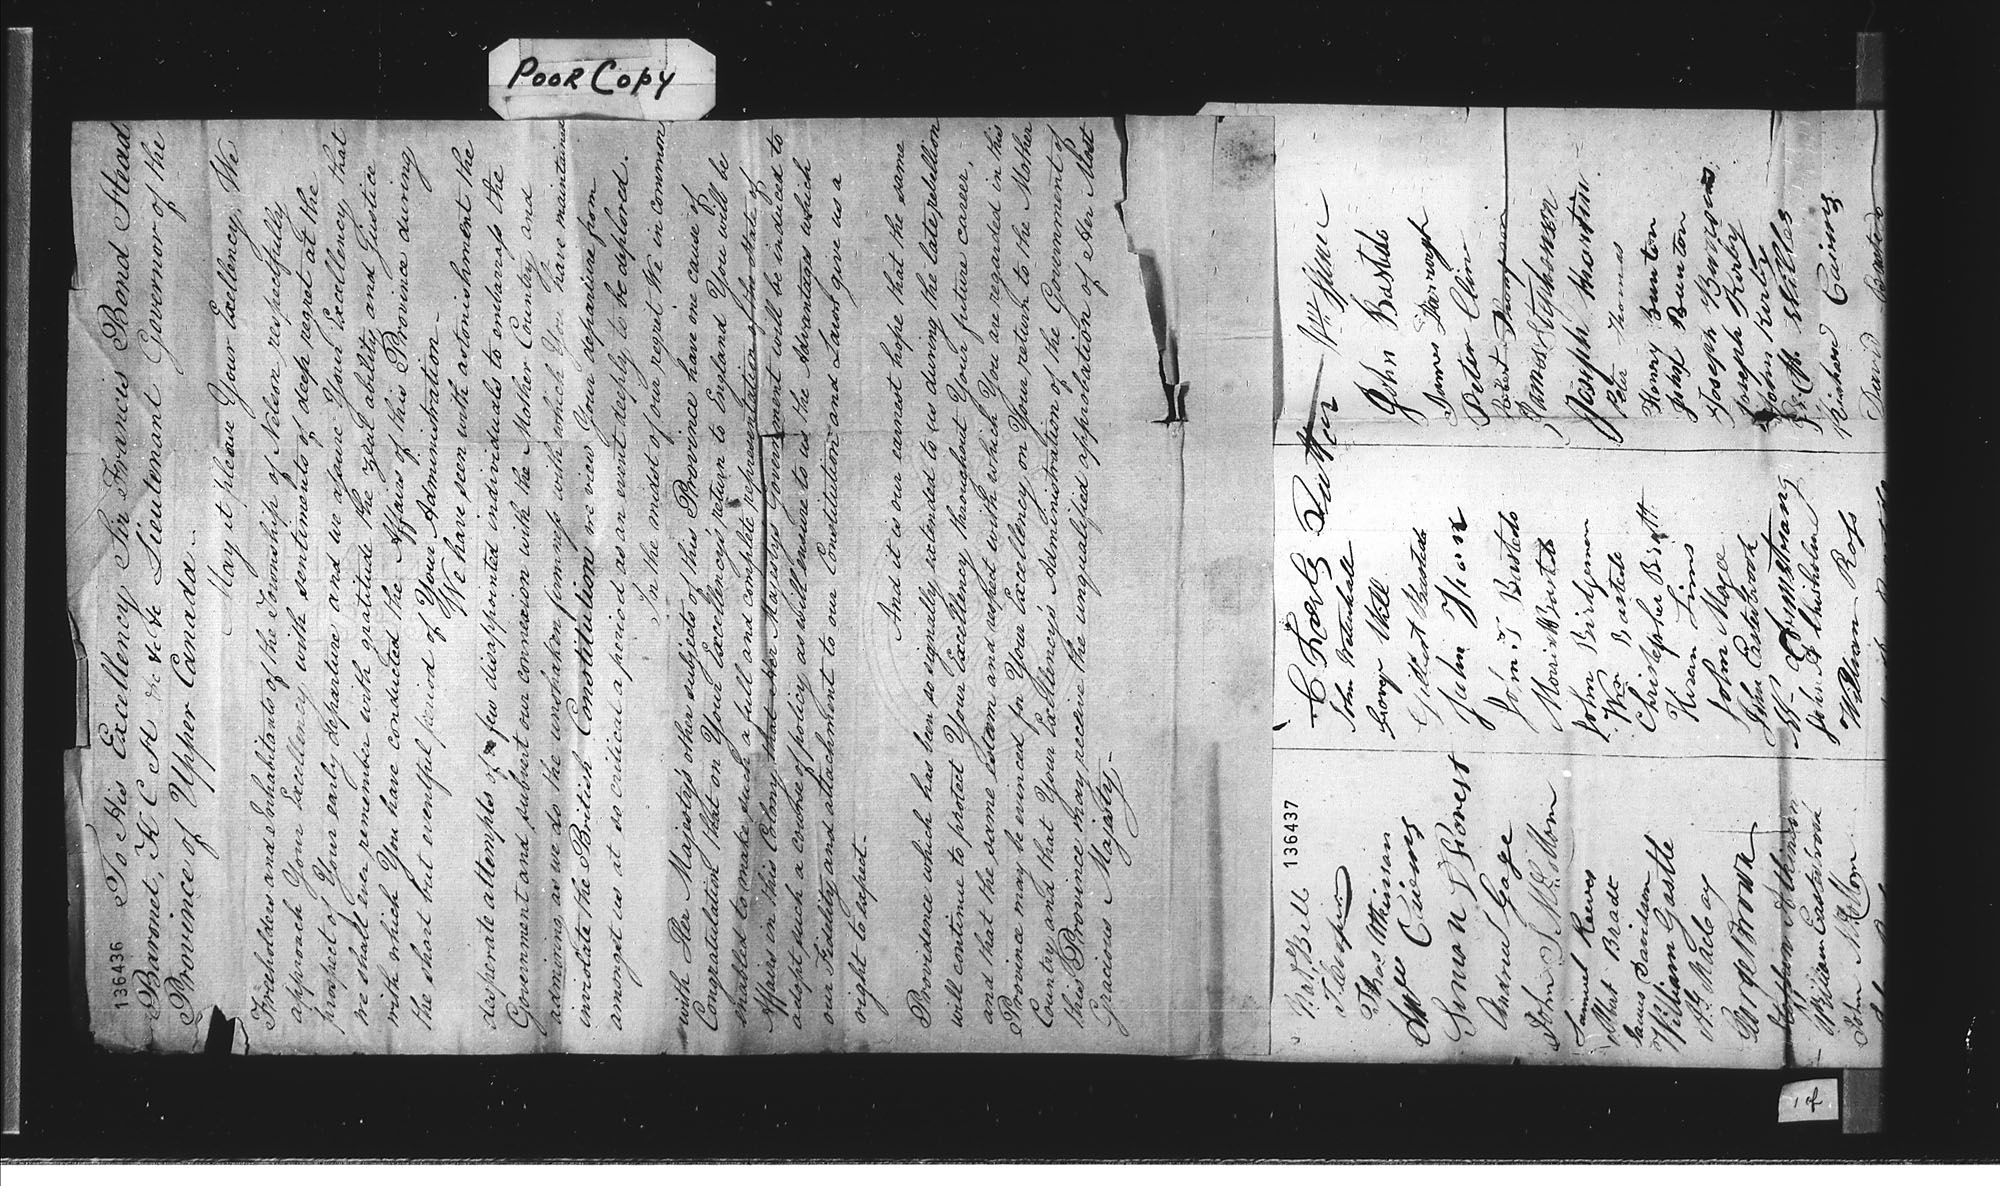 POOR COPY
136436
To His Excellency Sir Francis Bond Head
Baronet, K C H &c &c Lieutenant Governor of the
Province of Upper Canada...
May it please Your Excellency, We
Freeholders and Inhabitants of the Township of Nelson respectfully
approach Your Excellency with sentiments of deep regret at the
prospect of Your early departure and we assure Your Excellency that
we shall ever remember with gratitude the zeal ability and Justice
with which You have conducted the Affairs of this Province during
the short but eventful period of Your Administration—
We have seen with astonishment the
desperate attemps of a few disappointed individuals to embarass the
Government and subvert our connexion with the Mother Country and
admiring as we do the unshaken firmness with which You have maintained
inviolate the British Constitution we view Your departure from
amongst us at so critical a period as an event deeply to be deplored.
In the midst of our regret We in common
with Her Majesty's other subjects of this Province have one cause of
Congratulation that on Your Excellency's return to England You will be
enabled to make such a full and complete representation of the State of
Affairs in this Colony that Her Majestys Government will be induced to
adopt such a course of policy as will ensure to us the Advantages which
our Fidelity and attachment to our Constitution and Laws give us a
right to expect.
And it is our earnest hope that the same
Providence which has been so signally extended to us during the late rebellion
will continue to protect Your Excellency throughout Your future career,
and that the same esteem and respect with which You are regarded in this
Province may be evinced for Your Excellency on Your return to the Mother
Country and that Your Excellency's Administration of the Government of
this Province may receive the unqualified approbation of Her Most
Gracious Majesty—
136437
Bell
Thos Atkinson
Cairns
Simon D Forest
Andrew Gage
John
Samuel Reeves
Mat Bradt
James Davidson
William Gastle
George Brown
William Eastabrook
John
Charls Sutton
John Wetenhall
George Will
Gilbert Bastedo
John Thon
John. T Bastedo
John Bridgeman
Wm Bastedo
Christopher Brett
Hiram Lims
John Magee
John Eastabrook
Armstrang
John A Chisholm
William Ross
Wm
John Bastedo
James Darragh
Peter Cline
Robert Thompson
James Stephenson
Joseph Morstin
Peter Thomas
Henry Bunton
John Bunton
Joseph Barnns
Joseph Kerby
John Kerby
Richard Cairns
David
1 of